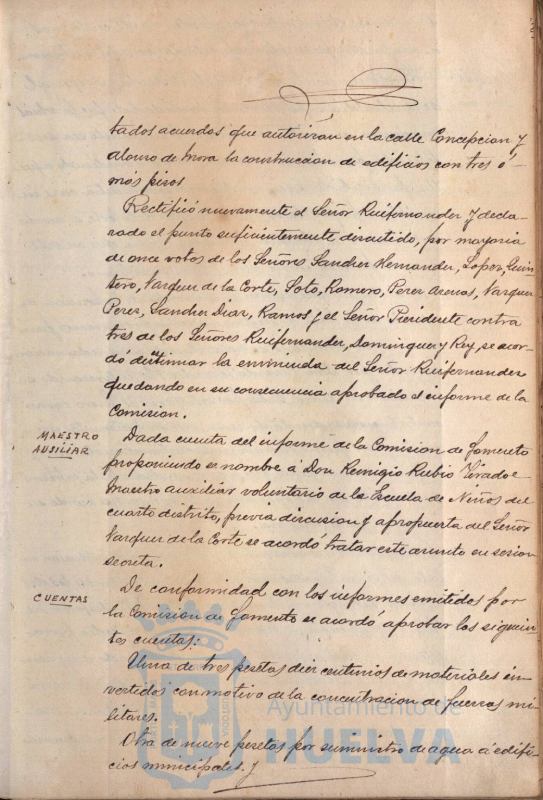 tados acuerdos que autorizan en la calle Concepcion y
Alonso de Mora la construccion de edificios con tres ó
más pisos
Rectificó nuevamente el Señor Ruifernandez y decla-
rado el punto suficientemente discutido, por mayoria
de once votos de los Señores Sanchez Hernandez, Lopez, Quin-
tero, Vazquez de la Corte, Soto, Romero, Perez Arenas, Vazquez
Perez, Sanchez Diaz, Ramos y el Señor Presidente contra
tres de los Señores Ruifernandez, Dominguez y Rey, se acor-
dó desestimar la enmienda del Señor Ruifernandez
quedando en su consecuencia aprobado el informe de la
Comision.
MAESTRO
AUSILIAR
Dada cuenta del informe de la Comision de Fomento
proponiendo se nombre á Don Remigio Rubio Tirado
Maestro auxiliar voluntario de la Escuela de Niños del
cuarto distrito, previa discusion y a propuesta del Señor
Vazquez de la Corte se acordó tratar este asunto en sesion
secreta.
CUENTAS
De conformidad con los informes emitidos por
la Comision de Fomento se acordó aprobar las siguien-
tes cuentas:
Una de tres pesetas diez centimos de materiales in-
vertidos con motivo de la concentracion de fuerzas mi-
litares.
Otra de nueve pesetas por suministro de agua á edifi-
cios municipales. y
Ayuntamiento de
HUELVA